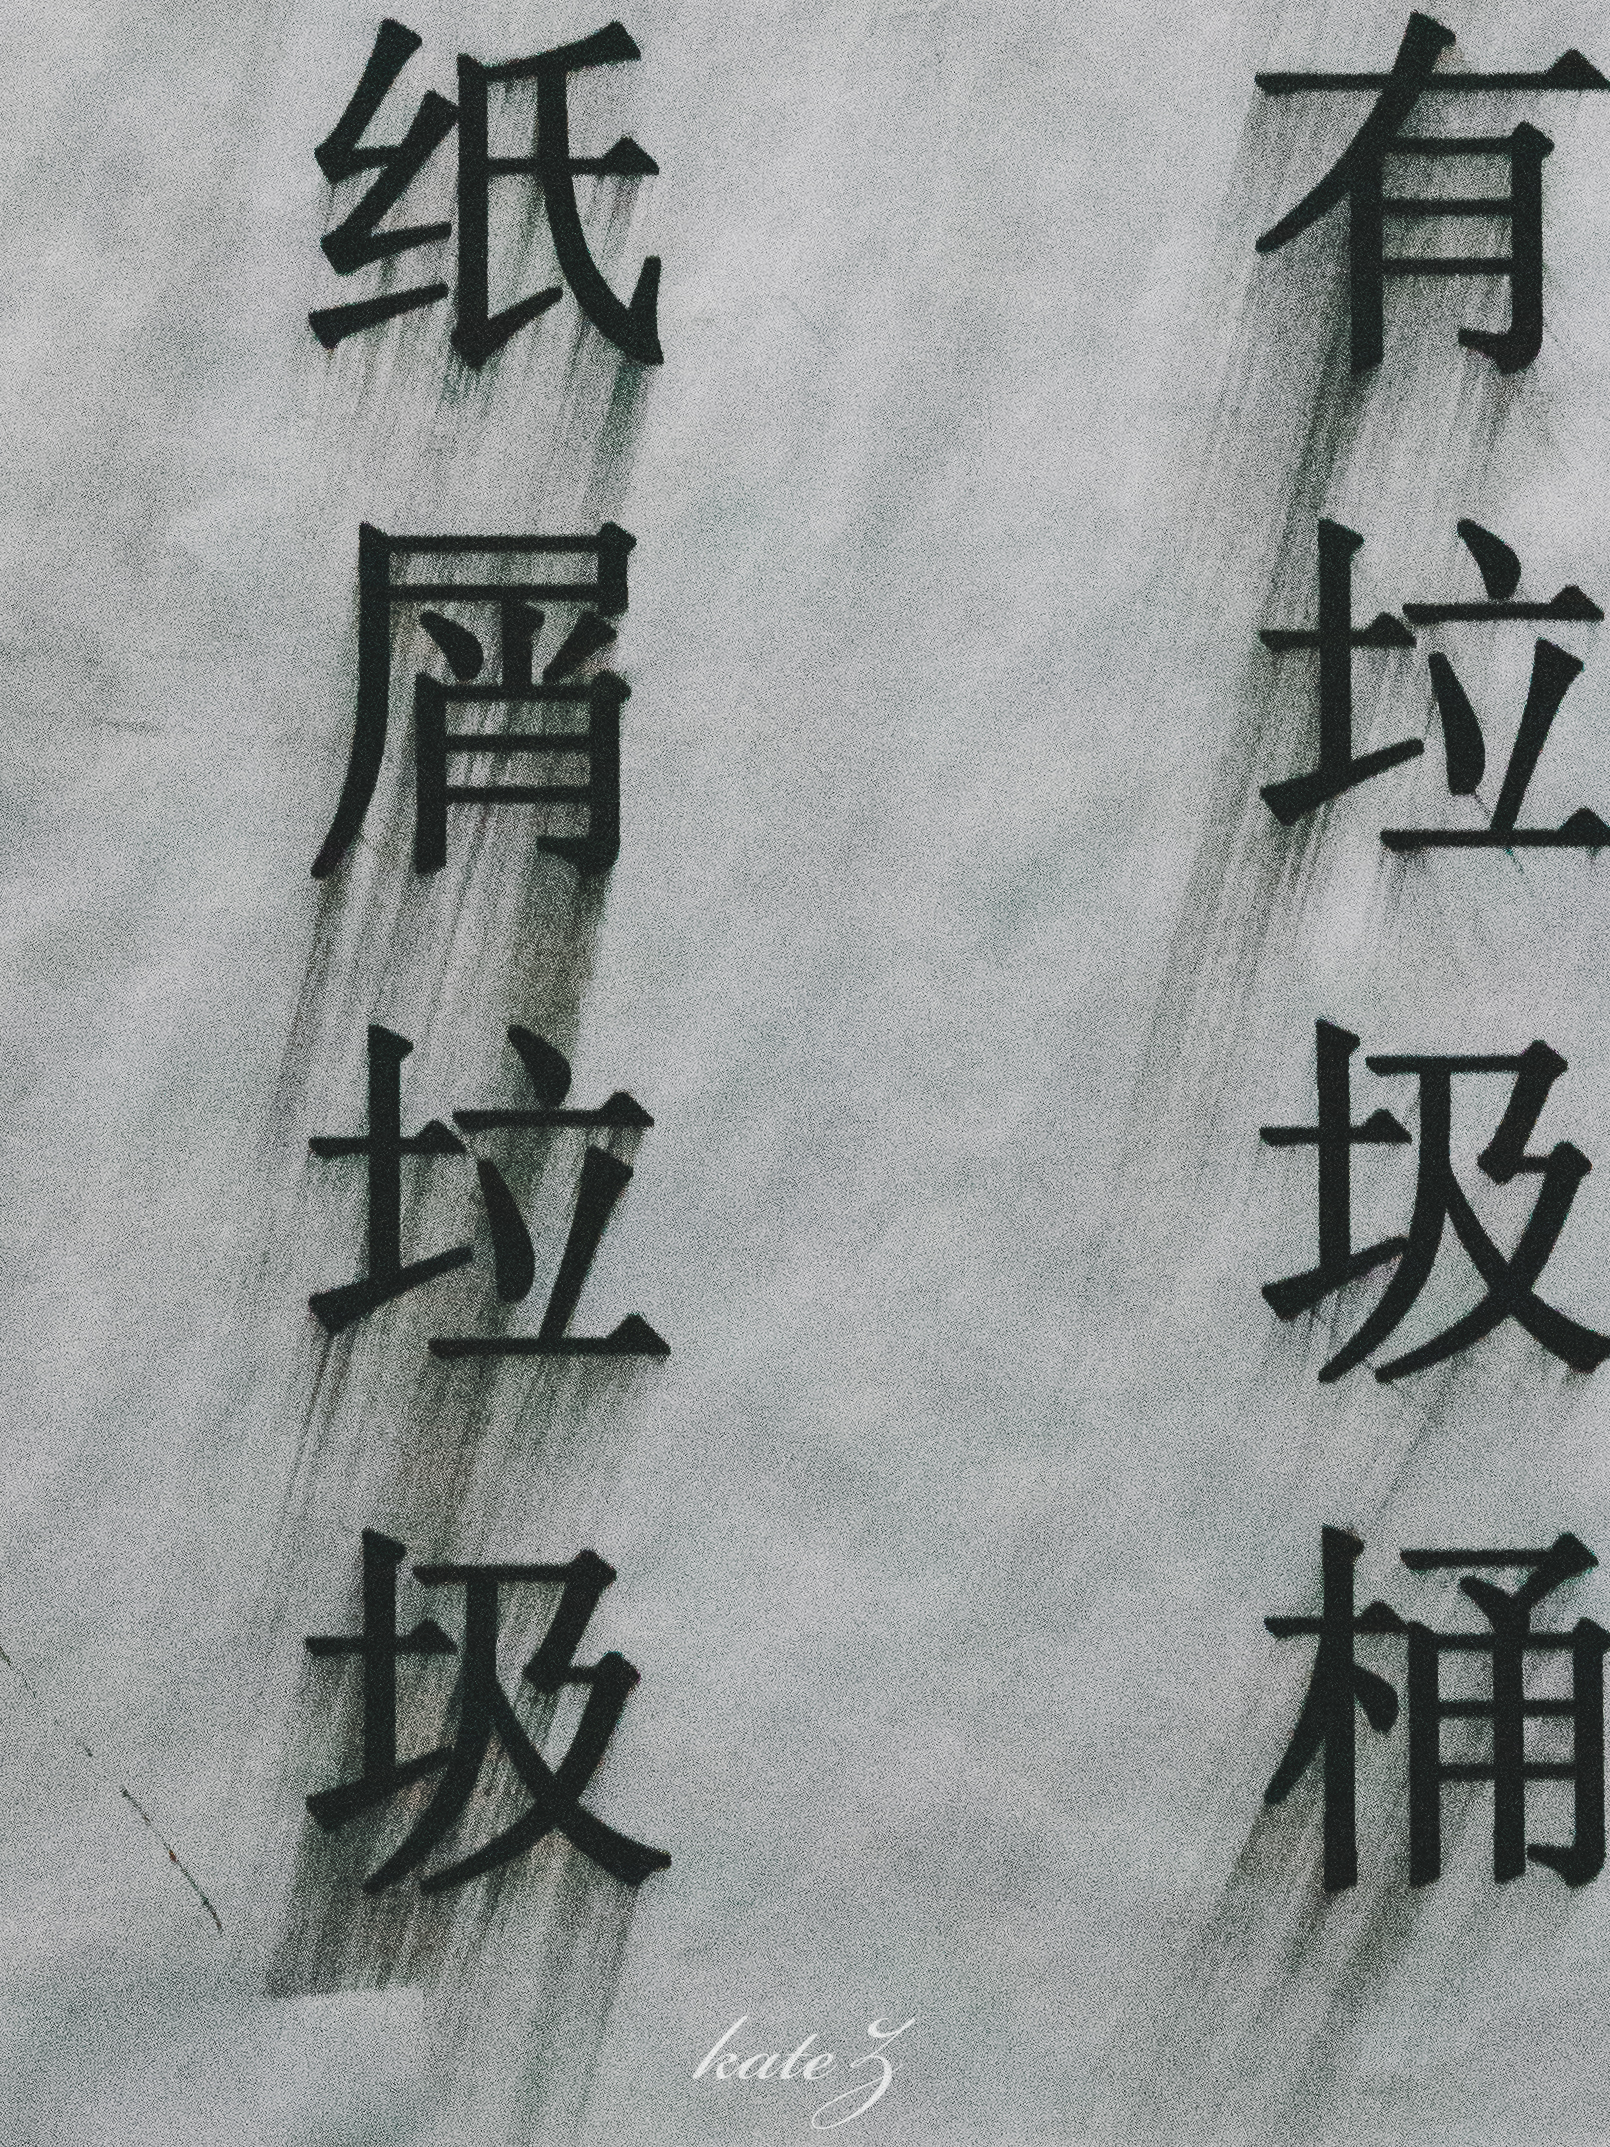 有垃圾桶
纸屑垃圾
kate Z